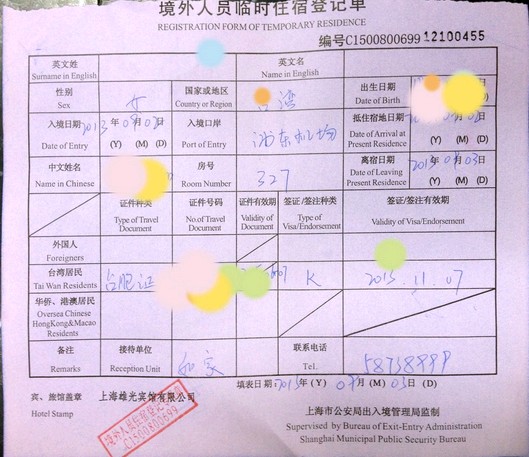 境外人员临时住宿登记单
REGISTRATION FORM OF TEMPORARY RESIDENCE
编号C1500800699 12100455
英文姓 英文名
Surname in English Name in English
性别 女 国家或地区 台湾 出生日期
Sex Country or Region Date of Birth
入境日期 2013 年 月 日 入境口岸 浦东机场 抵住宿地日期
Date of Entry (Y) (M) (D) Port of Entry Date of Arrival at Present Residence (Y) (M) (D)
中文姓名 房号 327 离宿日期 年 月 日
Name in Chinese Room Number Date of Leaving Present Residence (Y) (M) (D)
证件种类 证件号码 证件有效期 签证/签注种类 签证/签注有效期
Type of Travel Document No.of Travel Document Validity of Document Type of Visa/Endorsement Validity of Visa/Endorsement
外国人
Foreigners
台湾居民 台胞证 K 2015.11.07
Tai Wan Residents
华侨、港澳居民
Oversea Chinese
HongKong&Macao
Residents
备注 接待单位 如家 联系电话
Remarks Reception Unit Tel.
填表日期 2013 年 (Y) 月 (M) 日 (D)
宾、旅馆盖章 上海雄光宾馆有限公司
Hotel Stamp
境外人员住宿登记专用
C1500800699
上海市公安局出入境管理局监制
Supervised by Bureau of Exit-Entry Administration
Shanghai Municipal Public Security Bureau